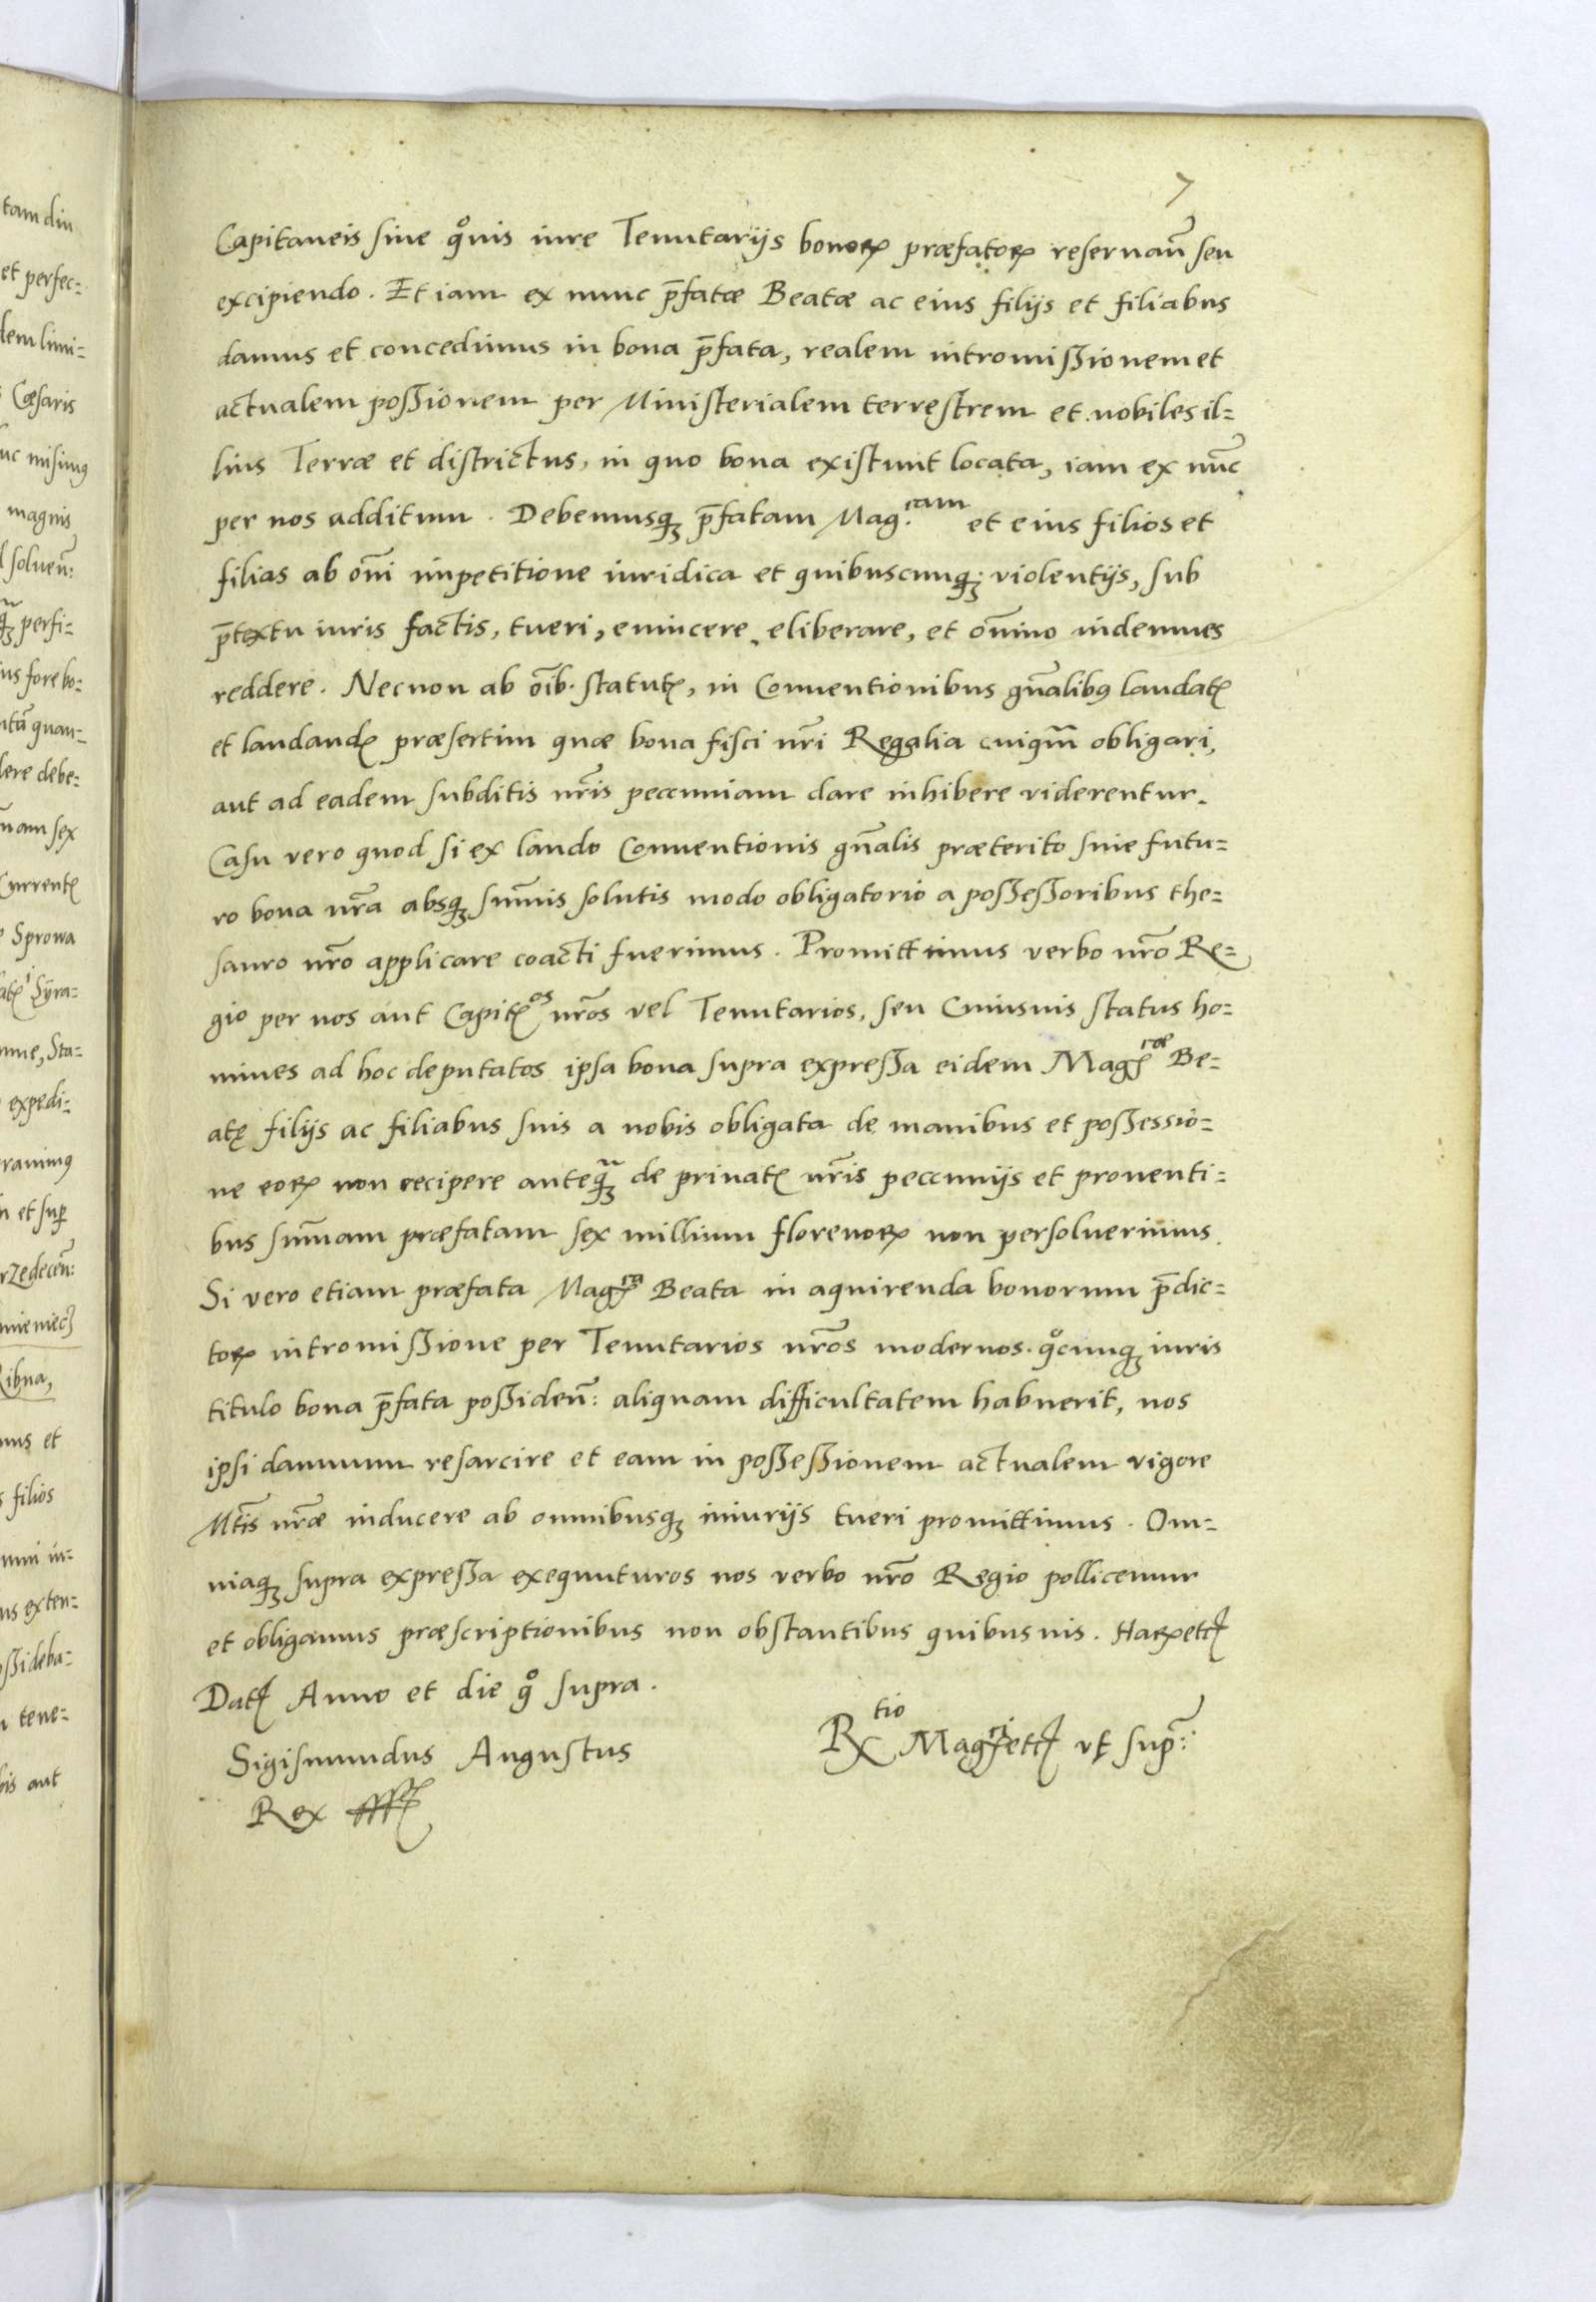 7
Capitaneis siue quouis iure Tenutarijs bonoꝝ præfatoꝝ reseruañ seu
excipiendo. Et iam ex nunc p̄fatæ Beatæ ac eius filijs et filiabus
damus et concedimus in bona p̄fata, realem intromißionem et
actualem poßionem per Ministerialem terrestrem et nobiles il=
lius Terræ et districtus, in quo bona existunt locata, iam ex nūc
per nos additum. Debemusqꝫ p̄fatam Mag:cam et eius filios et
filias ab om̄i impetitione iuridica et quibuscunqꝫ violentijs, sub
p̄textu iuris factis, tueri, euincere, eliberare, et om̄ino indemnes
reddere. Necnon ab oīb. statutꝭ, in Conuentionibus gn̄alibꝰ laudatꝭ
et laudandꝭ præsertim quæ bona fisci nr̄i Regalia cuiqm̄ obligari,
aut ad eadem subditis nr̄is peccuniam dare inhibere viderentur.
Casu vero quod si ex laudo Conuentionis gn̄alis præterito siue futu=
ro bona nr̄a absqꝫ sum̄is solutis modo obligatorio a poßeßoribus the=
sauro nr̄o applicare coacti fuerimus. Promittimus verbo nr̄o Re=
gio per nos aut Capitꝭos nr̄os vel Tenutarios, seu Cuiusuis status ho=
mines ad hoc deputatos ipsa bona supra expreßa eidem Magꝭcæ Be=
atę filijs ac filiabus suis a nobis obligata de manibus et poßessio=
ne eoꝝ non recipere anteqꝫ̃ de priuatꝭ nr̄is peccunijs et prouenti=
bus sum̄am præfatam sex millium florenoꝝ non persoluerimus.
Si vero etiam præfata Magꝭca Beata in aquirenda bonorum p̄dic=
toꝝ intromißione per Tenutarios nr̄os modernos. qͦcunqꝫ iuris
titulo bona p̄fata poßideñ: aliquam difficultatem habuerit, nos
ipsi damnum resarcire et eam in poßeßionem actualem vigore
Mtīs nr̄æ inducere ab omnibusqꝫ iniurijs tueri promittimus. Om=
niaqꝫ supra expreßa exequuturos nos verbo nr̄o Regio pollicemur
et obligamus præscriptionibus non obstantibus quibusuis. Haꝝ ettꝭ
Datꝭ Anno et die qͦ supra.
Sigismundus Augustus
Rex
Rxtio Magꝭci ettꝭ vt sup̄: